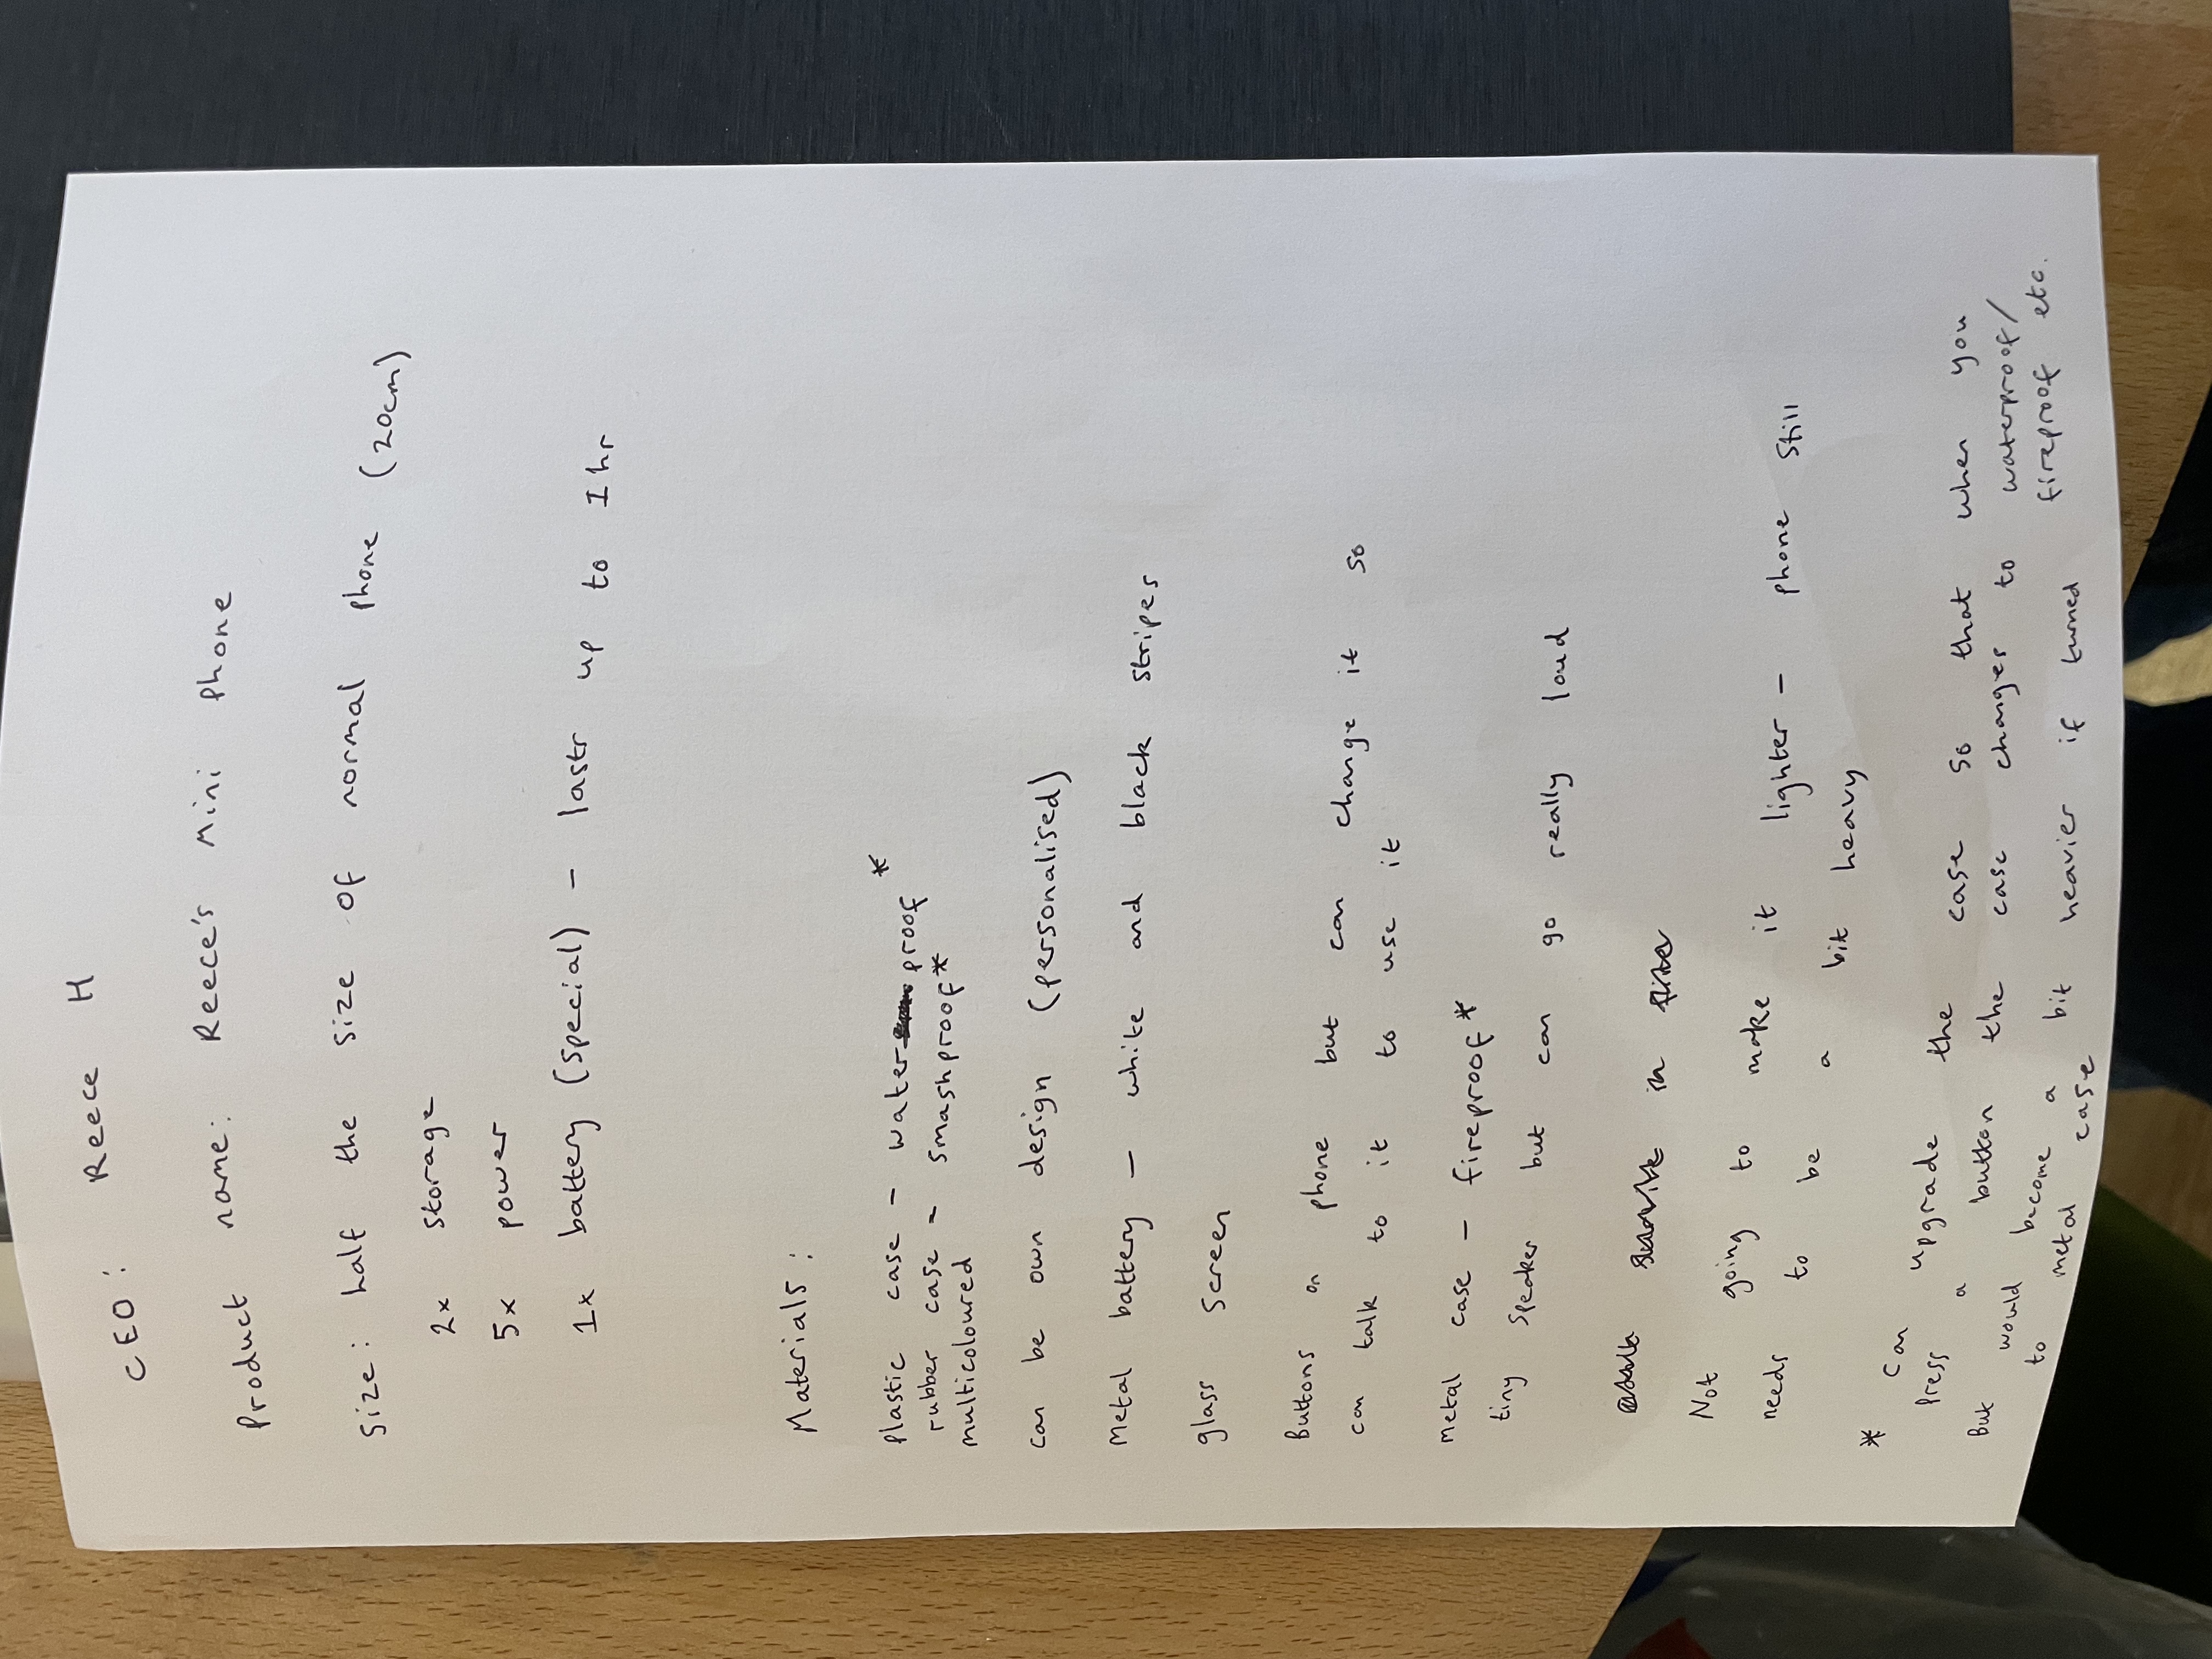 CEO: Reece H
Product name: Reece's Mini Phone
Size: half the size of normal phone (20cm)
2x storage
5x power
1x battery (special) - lasts up to 1hr
Materials:
Plastic case - waterproof *
rubber case - smashproof *
multicoloured
Can be own design (personalised)
Metal battery - white and black stripes
glass screen
Buttons on phone but can change it so
can talk to it to use it
Metal case - fireproof *
tiny speaker but can go really loud
Not going to make it lighter - phone still
needs to be a bit heavy
* Can upgrade the case so that when you
press a button the case changes to waterproof/
fireproof etc.
But would become a bit heavier if turned
to metal case